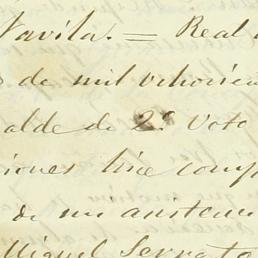 Navila. = Real
de mil ochocien
alde de 2º Voto
ciones hice comp
de mi asistenc
Miguel Serrato